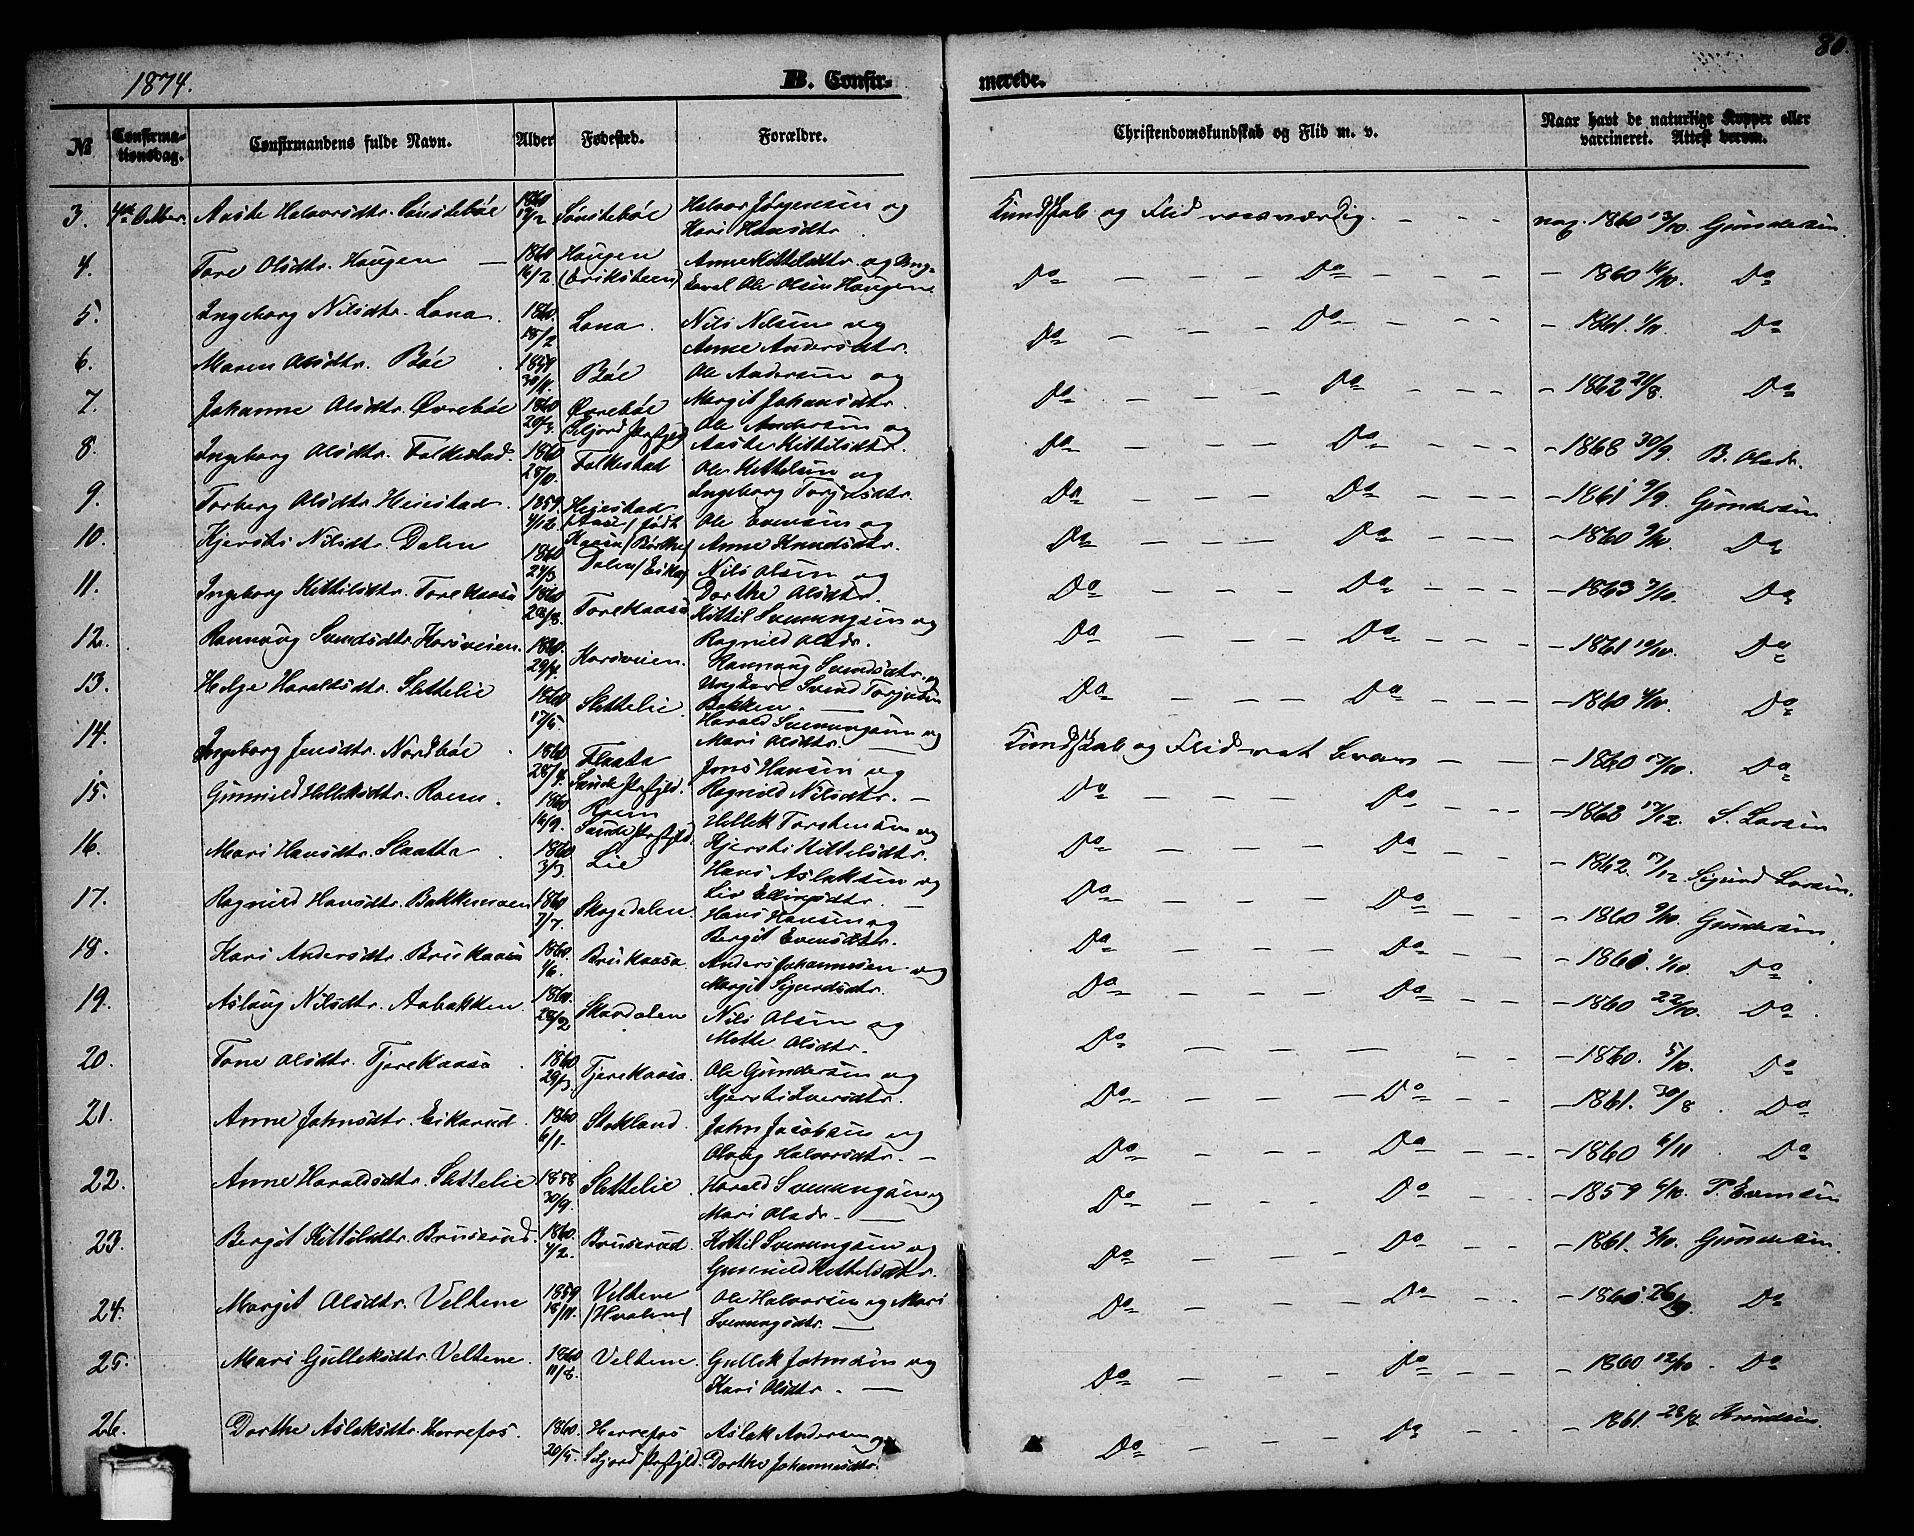 1874. B. Confir- merede. 80.
№ Confirma-tionsdag. Confirmandens fulde Navn. Alder Fødested. Forældre. Christendomskundskab og Flid m. v. Naar havt de naturlige Kopper eller varcineret. Attest derom.
3. 4de Octber. Aaste Halvorsdtr. Sönstebøe 1860 Sönstebøe Halvor Jörgensen og Kari Hansdtr. Kundskab og Flid roesværdig. - - - vac. 1860 13/10 Gundersen
4. Tore Olsdtr. Haugen — 1860 16/2 Haugen (Eriksteen) Anne Kittelsdtr. og Ung- karl Ole Olsen Haugene Do — — — Do — — - 1860 16/10 Do
5. Ingeborg Nilsdtr. Lona. 1860. 18/2 Lona. Nils Nilsen og Anne Andersdtr. Do — — — Do — — - 1861. 1/11. Do
6. Maren Olsdtr. Bøe 1859 30/11. Bøe Ole Andersen og Margit Johansdtr. Do — — — Do — — - 1862 21/8. Do
7. Johanne Olsdtr. Øvrebøe 1860 20/3. Øvrebøe (Seljord Prstgjeld) Ole Andersen og Aaste Kittilsdtr. Do — — — Do — — - 1868 30/9 B. Olsdr.
8. Ingeborg Olsdtr. Folkestad. 1860 28/10. Folkestad Ole Kittelsen og Ingeborg Torjusdtr. Do — — — Do — — - 1861 9/9. Gundersen
9. Torberg Olsdtr. Heiestad. 1859. 4/12. Heiestad Ole Evensen og Anne Knudsdtr. Do — — — Do — — - 1860 9/10 Do
10. Kjersti Nilsdtr. Dalen 1860 24/3 Dalen (Eika) Nils Olsen og Dorthe Olsdtr. Do — — — Do — — - 1863 7/10. Do
11. Ingeborg Kittilsdtr. Torekaasa 1860 28/8. Torekaasa Kittil Svenungsen og Ragnild Olsdr. Do — — — Do — — - 1861 19/10. Do
12. Rannoug Svendsdtr. Korsveien 1860. 29/4. Korsveien. Rannoug Svendsdtr. og Ungkarl Svend Torjusen Bakken. — Do — — — Do — — - 1860 4/10. Do
13. Helge Haraldsdtr. Slettelie 1860 17/5 Slettelie. Harald Svenungsen og Mari Olsdtr. —
14. Ingeborg Jensdtr. Nordbøe 1860 28/4. Flaata Sande Prstgjld. Jens Hansen og Ragnild Nilsdtr. — Kundskab og Flid - — - 1860 17/10. Do
15. Gunnild Helleksdtr. Roen. 1860 16/9. Roen Sande Prstgjld. Hellek Torstensen og Kjersti Kittelsdtr. Do — — — Do — — - 1863 17/12. S. Larsen
16. Mari Hansdtr. Slaatta 1860 3/3 Lie Hans Aslaksen og Liv Ellingsdtr. — Do — — — Do — — - 1862. 17/12 Sigurd Larsen.
17. Ragnild Hansdtr. Bakkemoen 1860 7/7. Skogedalen. Hans Hansen og Bergit Evensdtr. Do — — — Do — — - 1860 9/10. Gundersen.
18. Kari Andersdtr. Brukaasa 1860. 1/6. Brukaasa. Anders Johannesen og Margit Sigurdsdtr. Do — — — Do — — - 1860. 1/10. Do
19. Aslaug Nilsdtr. Aabakken. 1860. 28/2 Skardalen Nils Olsen og Mette Olsdtr. Do — — — Do — — - 1860 22/10. Do.
20. Tone Olsdtr. Tjerekaasa 1860 29/3. Tjerekaasa. Ole Gundersen og Kjersti Iversdtr. Do — — — — - 1860. 5/10. Do
21. Anne Johnsdtr. Eikarud. 1860 6/1. Stokland. John Jacobsen og Oloug Halvorsdtr. — Do — — — Do — — - 1861. 30/8. Do
22. Anne Haraldsdtr. Slettelie 1858 30/9. Slettelie. Harald Svenungsen og Mari Olsdr. — Do — — — Do — — - 1860 6/11 Do
23. Bergit Kittilsdtr. Bruserud. 1860. 4/2. Bruserud. Kittil Svenungsen og Gunnild Kittelsdtr. Do — — — Do — — - 1859 6/10. P. Evensen
24. Margit Olsdtr. Veltene 1859 18/11. Veltene (Hvalen) Ole Halvorsen og Mari Svenungsdtr. — Do — — — Do — — - 1861. 3/10. Gundersen.
25. Mari Gulleksdtr. Veltene. 1860 11/8. Veltene. Gullek Johnsen og Kari Olsdtr. — Do — — — Do — — - 1860 26/9. Do
Do — — — Do — — - 1860 12/10. Do
26. Dorthe Aslaksdtr. Herrefos. 1860. 20/5. Herrefos Seljord Prstgjld. Aslak Andersen og Dorthe Johannesdtr. Do — — — Do — — - 1861. 28/8. Knudsen.